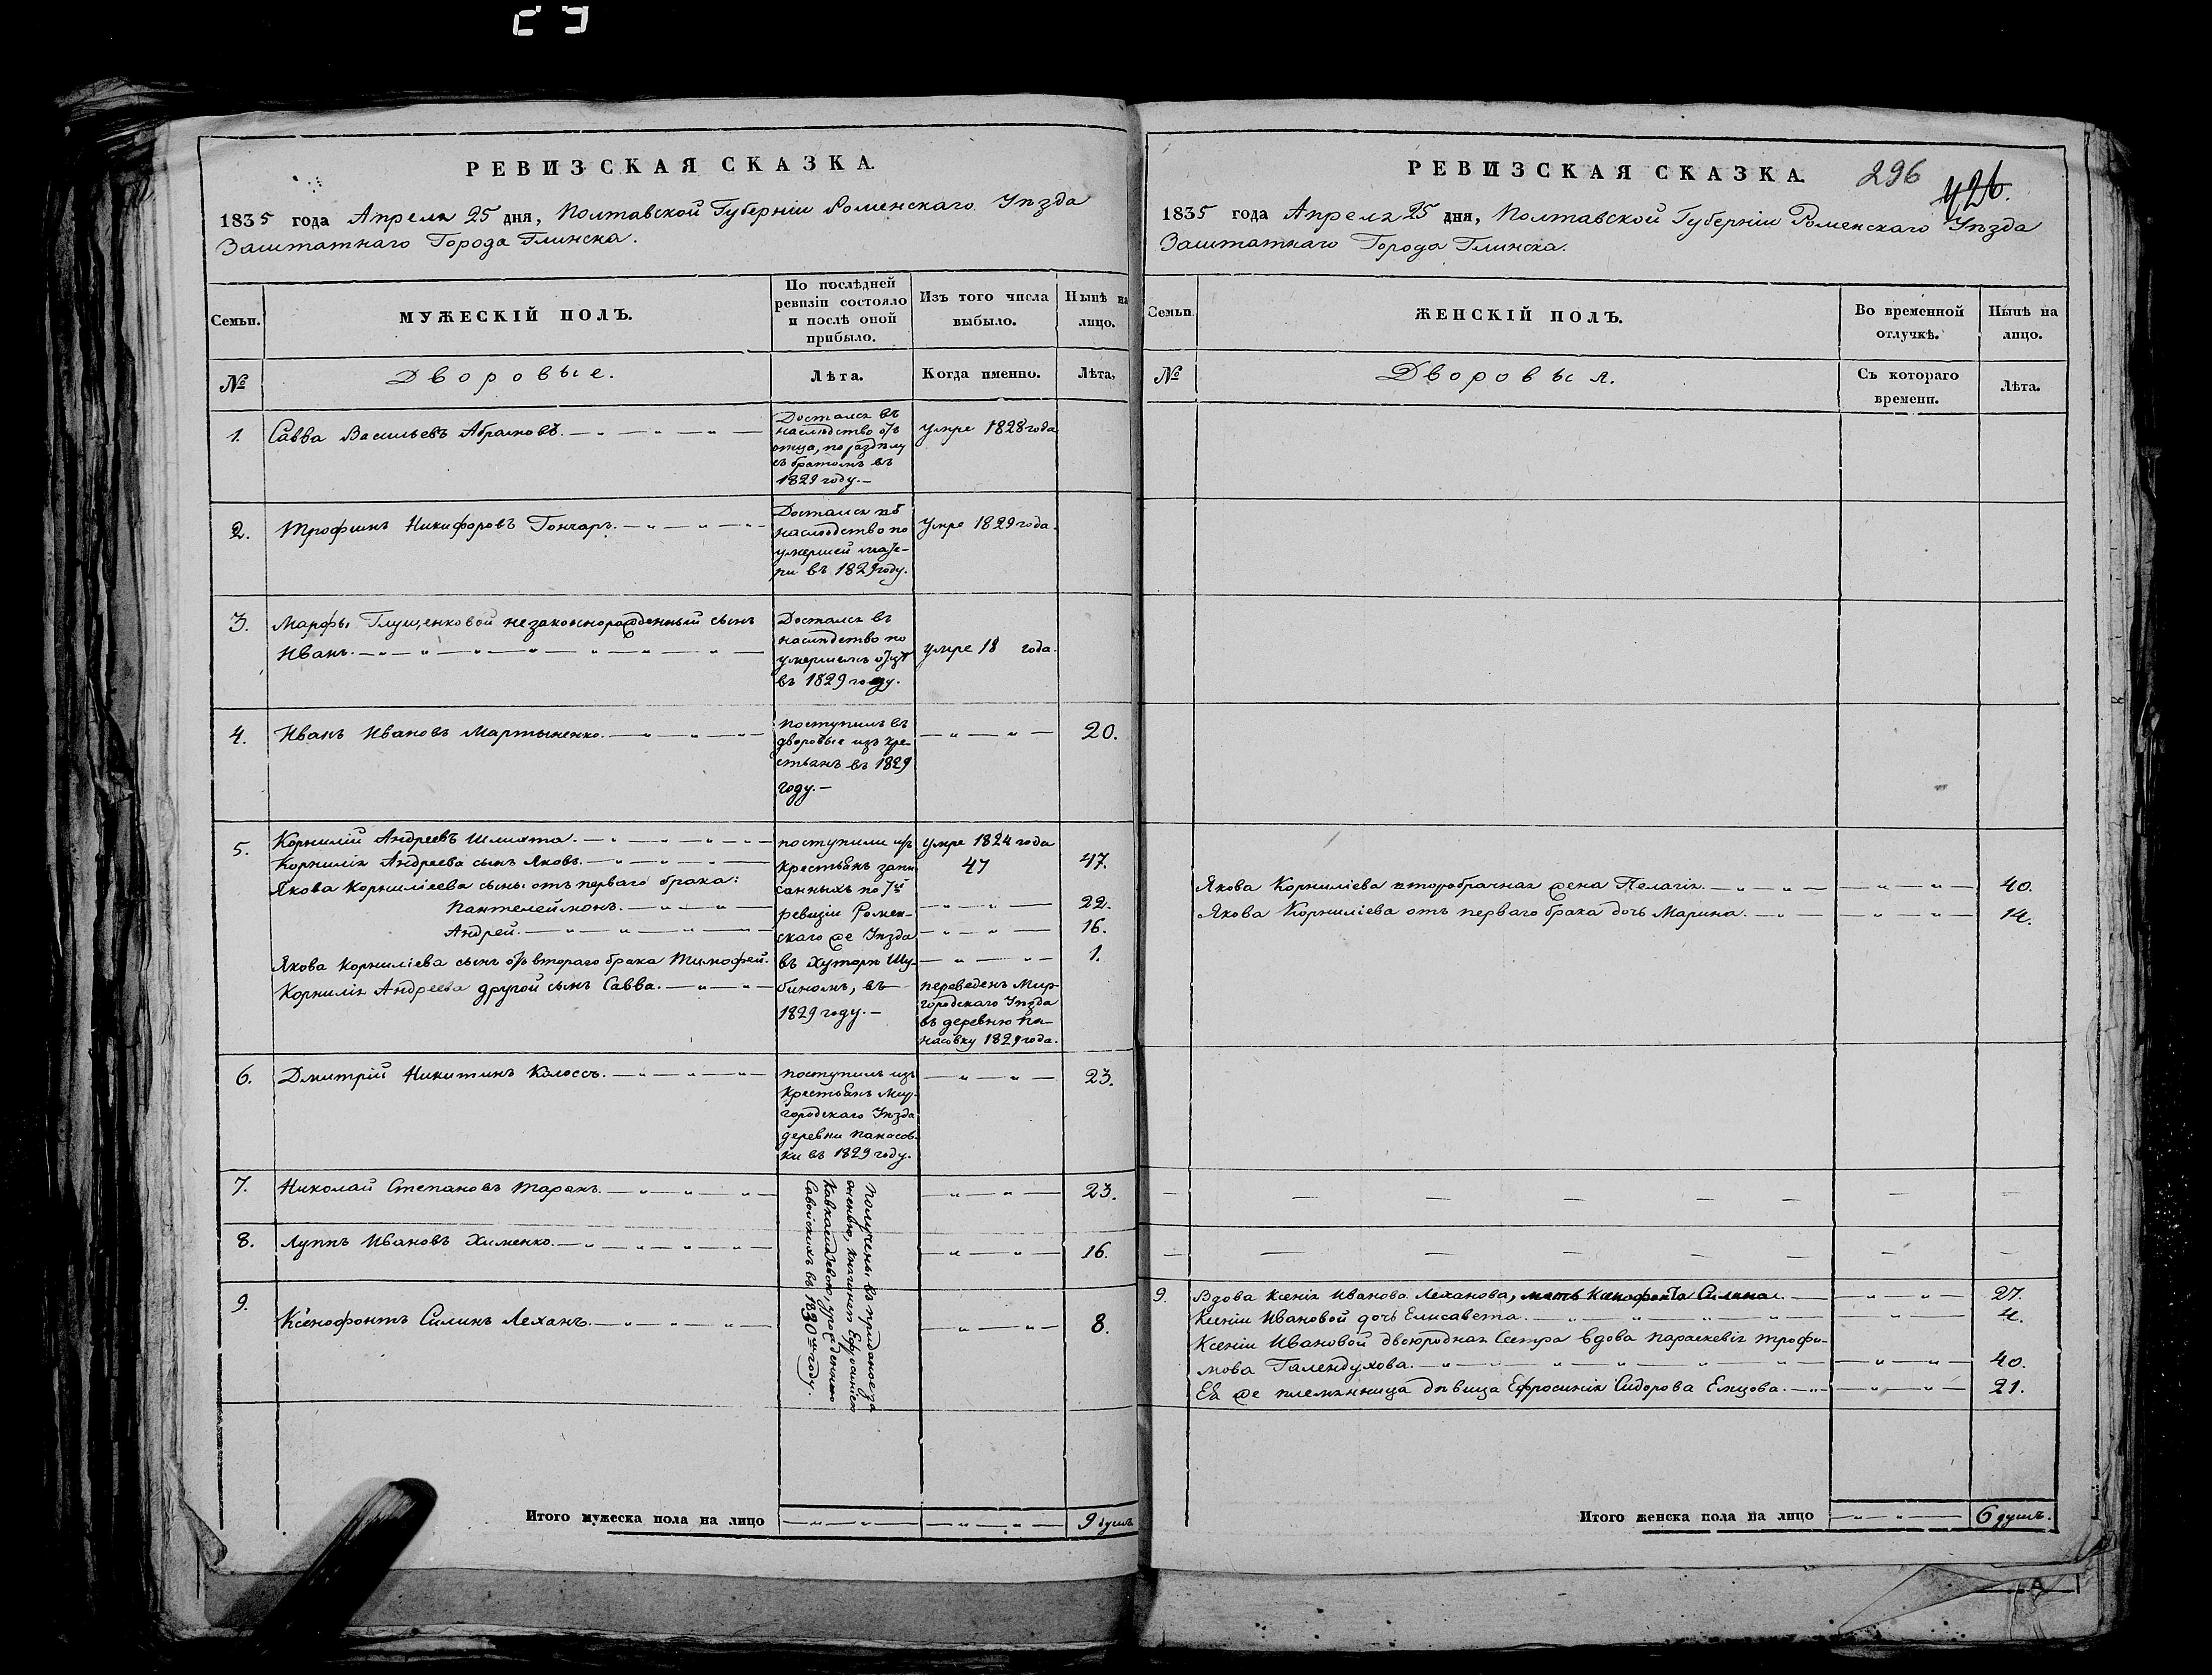 РЕВИЗСКАЯ СКАЗКА.
1835 года Апреля 25 дня, Полтавской Губерніи Роменскаго Уѣзда
Заштатнаго Города Глинска.
Семьи.
МУЖЕСКІЙ ПОЛЪ.
По послѣдней
ревизіи состояло
и послѣ оной
прибыло.
Изъ того числа
выбыло.
Нынѣ на
лицо.
№
Дворовые.
Лѣта.
Когда именно.
Лѣта,
1.
Савва Васильевъ Абрамовъ.
Достался въ
наслѣдство отъ
отца, по раздѣлу
съ братомъ въ
1829 году.
умре 1828 года
2.
Трофимъ Никифоровъ Гончаръ.
Достался въ
наслѣдство по
умершей мате-
ри въ 1829 году.
умре 1829 года.
3.
Марфы Глущенковой незаконнорожденный сынъ
Иванъ.
Достался въ
наслѣдство по
умершемъ отцѣ
въ 1829 году.
умре 18 года.
4.
Иванъ Ивановъ Мартыненко.
поступилъ въ
дворовые изъ кре-
стьянъ въ 1829
году.
20.
5.
Корнилій Андреевъ Шляхта.
Корнилія Андреева сынъ Яковъ.
Якова Корниліева сыны отъ перваго брака:
Пантелеймонъ.
Андрей.
Якова Корниліева сынъ отъ втораго брака Тимофей.
Корнилія Андреева другой сынъ Савва.
поступили изъ
крестьянъ запи
санныхъ по 7й
ревизіи Ромен-
скаго же Уѣзда
въ хуторѣ Шу-
биномъ, въ
1829 году.
умре 1824 года
47
переведенъ Мир-
городскаго Уѣзда
въ деревню Па-
насовку 1829 года.
47.
22.
16.
1.
6.
Дмитрій Никитинъ Колоссъ.
поступилъ изъ
крестьянъ Мир-
городскаго Уѣзда
деревни Панасов-
ки въ 1829 году.
23.
7.
Николай Степановъ Таранъ.
23.
8.
Луппъ Ивановъ Хименко.
16.
9.
Ксенофонтъ Силинъ Леханъ.
8.
Получены въ приданое за
женою, Княгинею Ефросиніею
урожденною
въ 1830мъ году.
Итого мужеска пола на лицо
9 душъ
РЕВИЗСКАЯ СКАЗКА.
296
426.
1835 года Апреля 25 дня, Полтавской Губерніи Роменскаго Уѣзда
Заштатнаго Города Глинска.
Семьи.
ЖЕНСКІЙ ПОЛЪ.
Во временной
отлучкѣ.
Нынѣ на
лицо.
№
Дворовыя.
Съ котораго
времени.
Лѣта.
Якова Корниліева второбрачная жена Пелагія. 40.
Якова Корниліева отъ перваго брака дочь Марина. 14.
9.
Вдова Ксенія Иванова Леханова, мать Ксенофонта Силина. 27.
Ксеніи Ивановой дочь Елисавета. 4.
Ксеніи Ивановой двоюродная Сестра вдова Параскевія Трофи-
мова Галендухова. 40.
Ея же племянница дѣвица Ефросинія Сидорова Емцова. 21.
Итого женска пола на лицо
6 душъ.